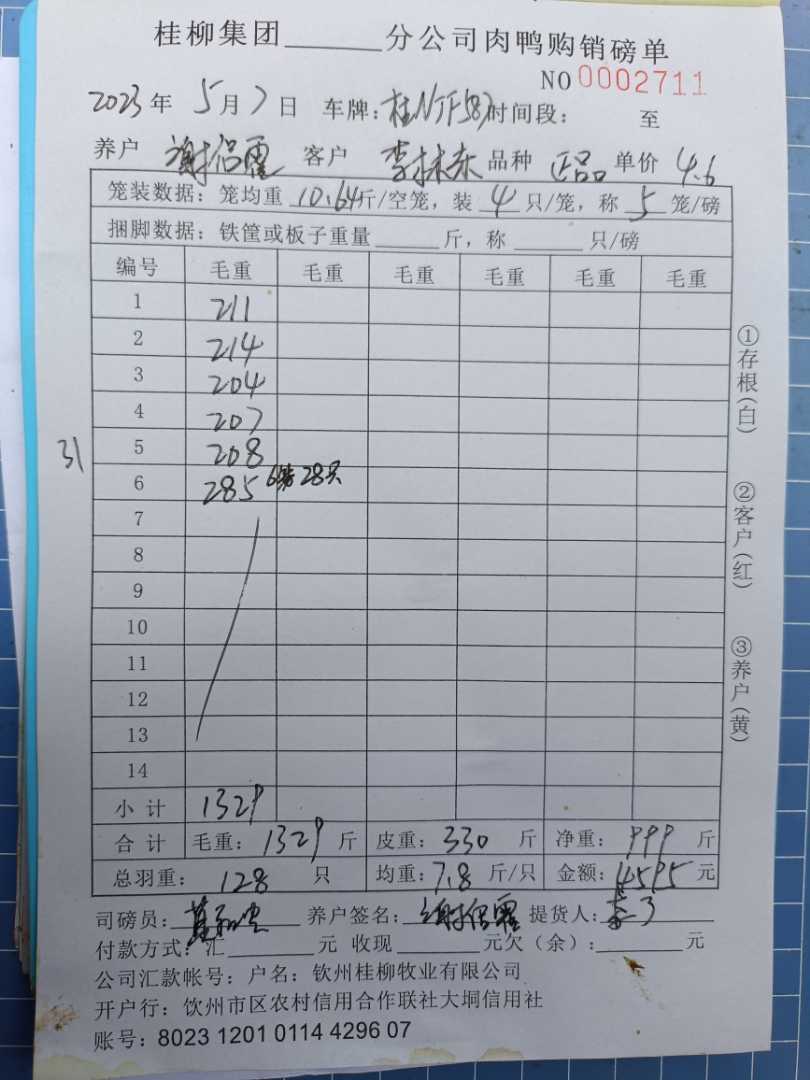 桂柳集团______分公司肉鸭购销磅单
NO 0002711
2023年 5月7日 车牌: 时间段: 至
养户 谢侣霍 客户 李林东 品种 正品 单价 4.6
笼装数据: 笼均重 10.64斤/空笼, 装 4 只/笼, 称 5 笼/磅
捆脚数据: 铁筐或板子重量______斤, 称______只/磅
编号 毛重 毛重 毛重 毛重 毛重 毛重
1 211
2 214
3 204
4 207
31 5 208
6 285 28只
7
8
9
10
11
12
13
14
小计 1329
合计 毛重: 1329 斤 皮重: 330 斤 净重: 999 斤
总羽重: 128 只 均重: 7.8 斤/只 金额: 4595 元
司磅员: 养户签名: 谢侣霍 提货人:
付款方式: 汇______元 收现______元欠(余):______元
公司汇款帐号: 户名: 钦州桂柳牧业有限公司
开户行: 钦州市区农村信用合作联社大垌信用社
账号: 8023 1201 0114 4296 07
①存根(白)
②客户(红)
③养户(黄)